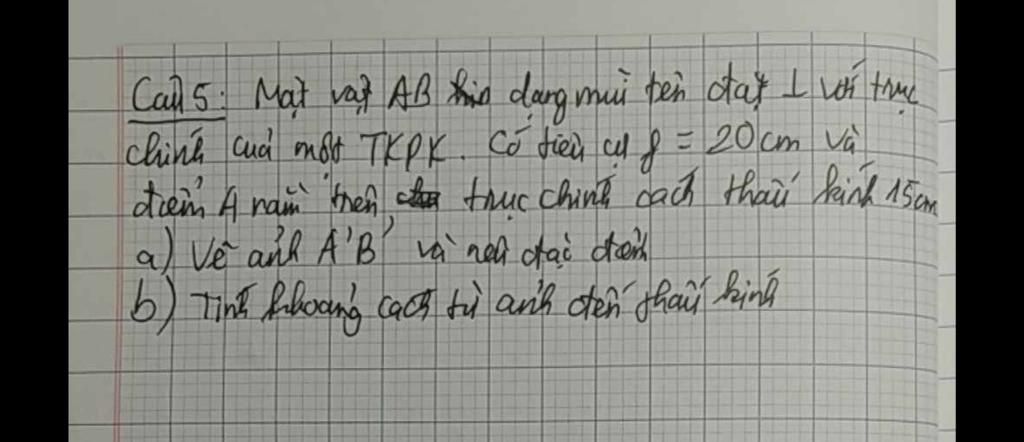 Câu 5: Một vật AB dạng mũi tên đặt ⊥ với trục
chính của một TKPK. Có tiêu cự f = 20cm và
điểm A nằm trên trục chính cách thấu kính 15cm
a) Vẽ ảnh A'B' và nêu đặc điểm
b) Tính khoảng cách từ ảnh đến thấu kính